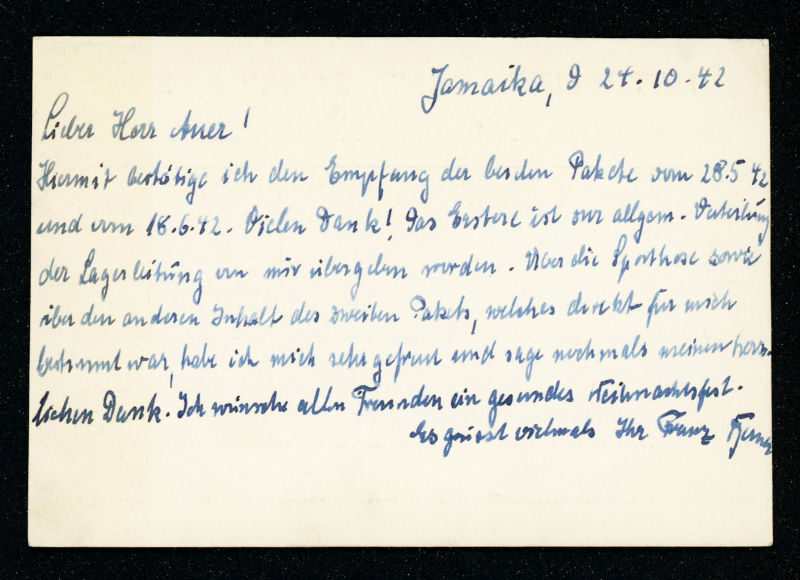 Jamaika, d 24.10.42
Lieber Herr Auer!
Hiermit bestätige ich den Empfang der beiden Pakete vom 28.5.42
und vom 18.6.42. Vielen Dank! Das Erstere ist zur allgem. Verteilung
der Lagerleitung von mir übergeben worden. Über die Sporthose sowie
über den anderen Inhalt des zweiten Pakets, welches direkt für mich
bestimmt war, habe ich mich sehr gefreut und sage nochmals meinen herz-
lichen Dank. Ich wünsche allen Freunden ein gesundes Weihnachtsfest.
Es grüsst vielmals Ihr Franz